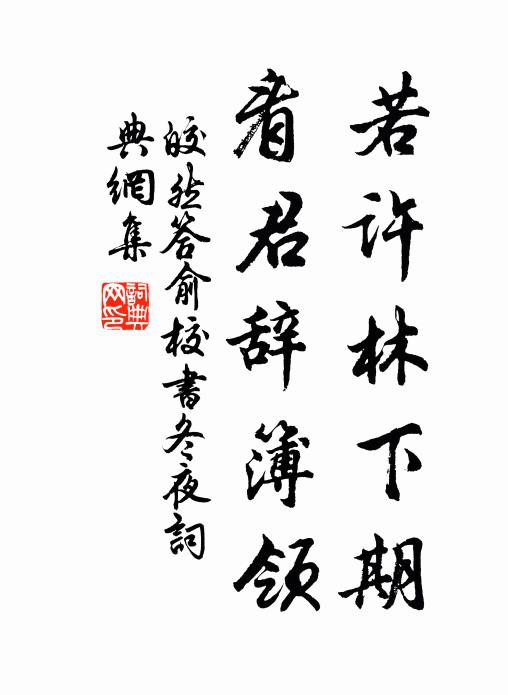 若许林下期
看君辞簿领
皎然答俞校書冬夜詞
典網集
詞典網印